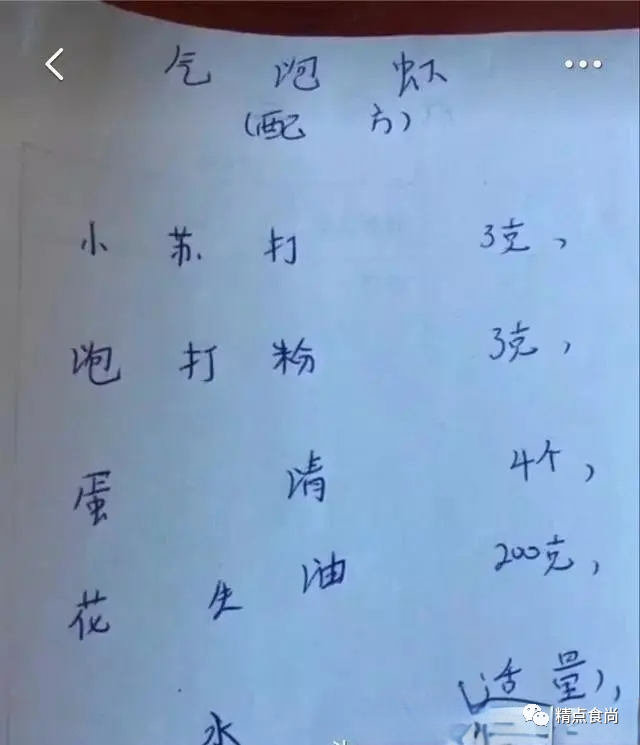 气泡虾
(配方)
小苏打 3克,
泡打粉 3克,
蛋清 4个,
花生油 200克,
水 (适量),
精点食尚